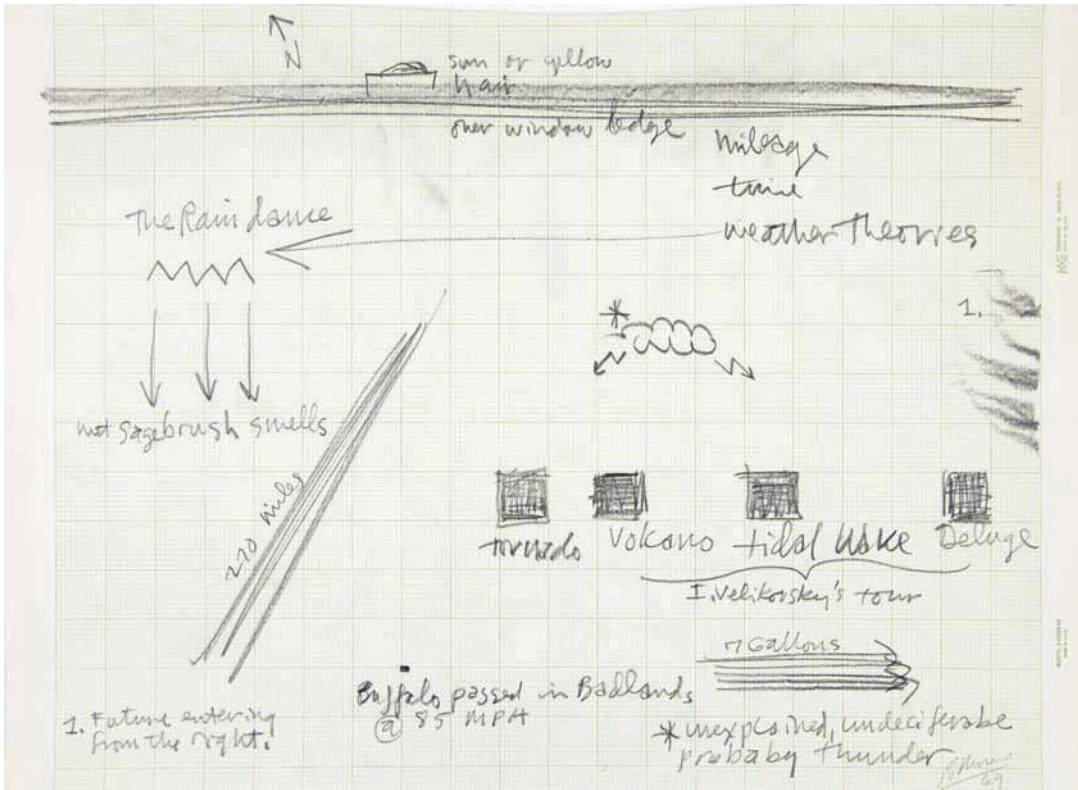 N
sun or yellow
hair
over window ledge
mileage
time
weather Theories
The Rain dance
1.
wet sagebrush smells
220 miles
*
tornado
Volcano
tidal wave
Deluge
I. Velikovsky's tour
7 Gallons
Buffalo passed in Badlands
@ 85 MPH
1. Future entering
from the right.
* unexplained, undeciferabe
probaby thunder
69